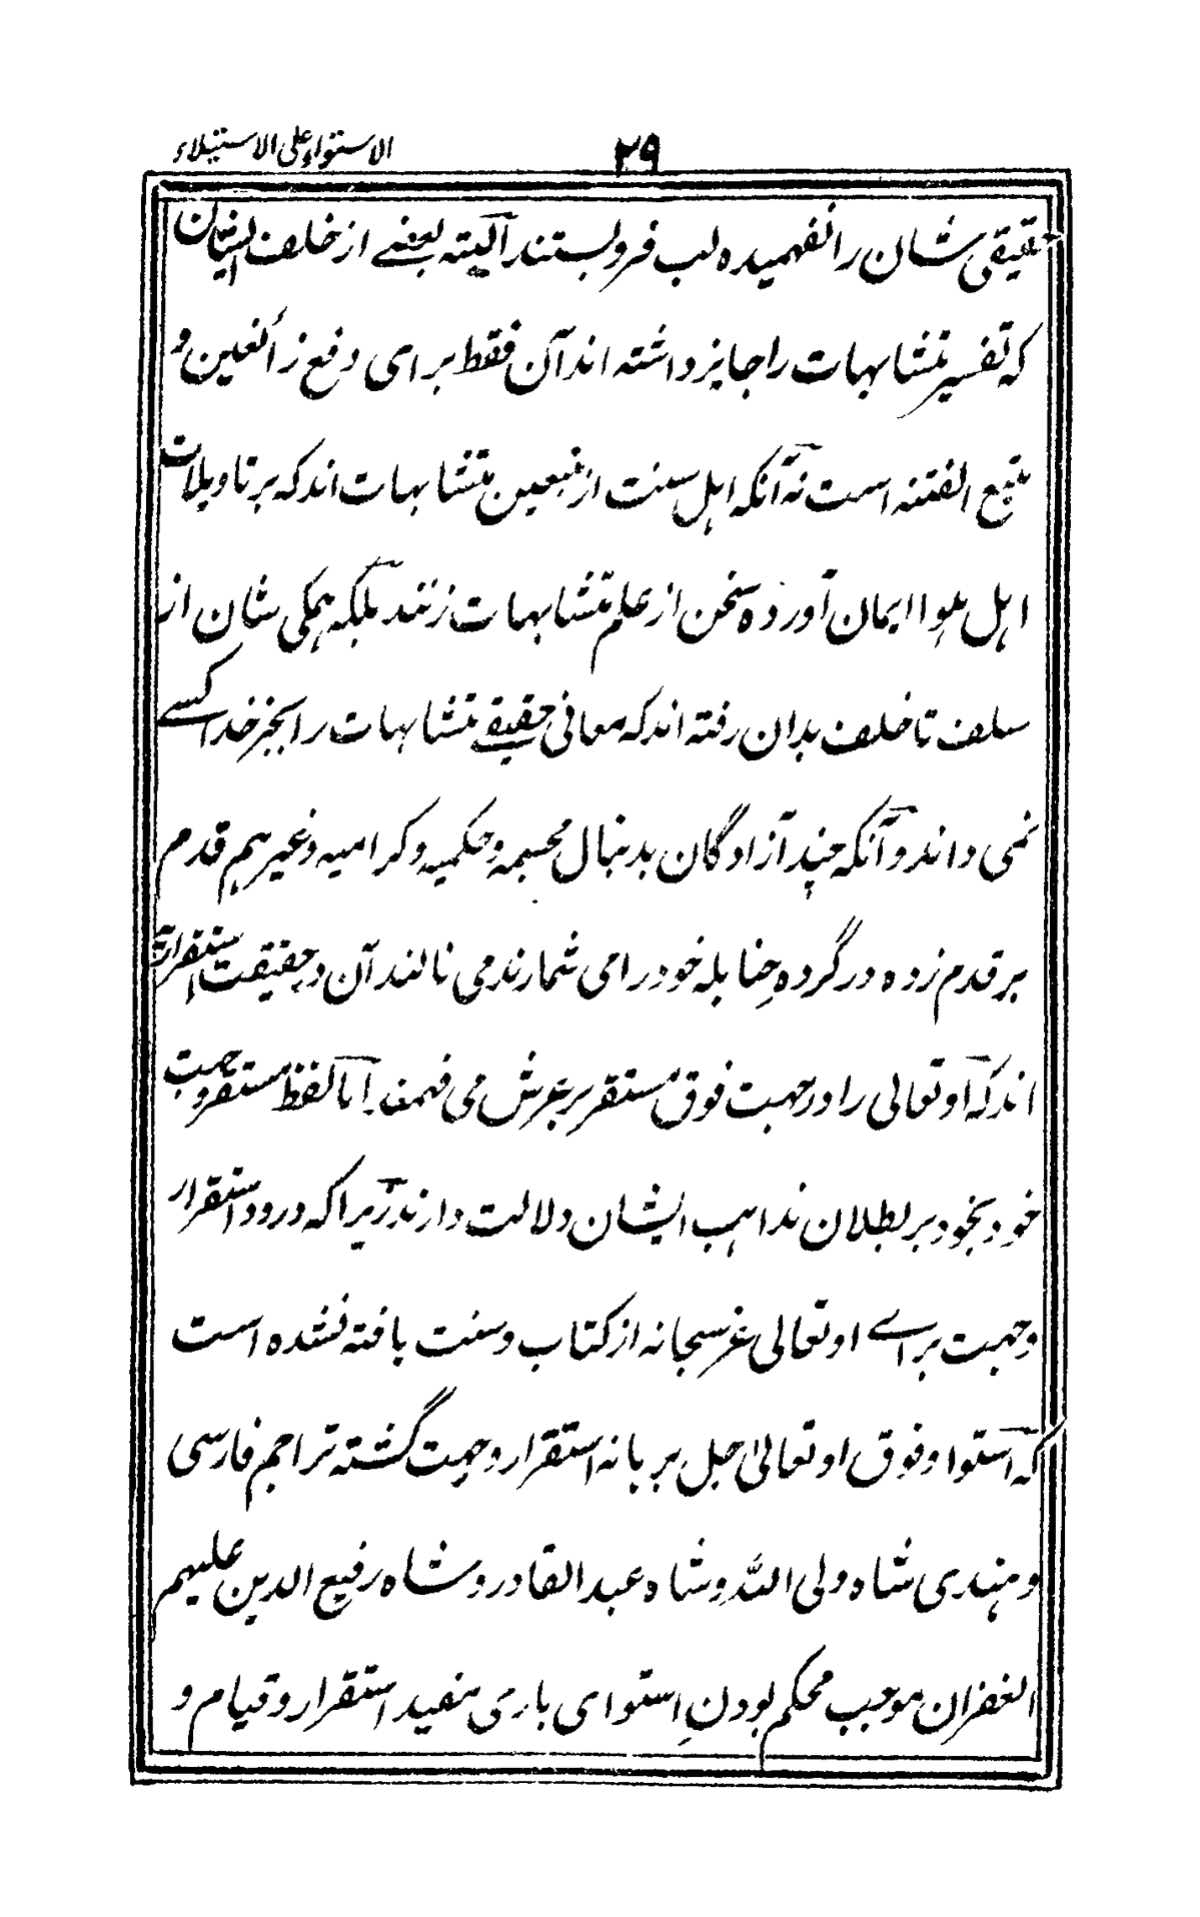 ۲۹ الاستواء علی الاستیلاء
حقیقی شان را نفهمیده لب فروبستند البته بعضے از خلف ایشان
که تفسیر متشابهات را جایز داشته اند آن فقط برای دفع زائغین و
متبع الفتنه است نه آنکه اهل سنت از متبعین متشابهات اند که بر تاویلات
اهل هوا ایمان آورده سخن از علم متشابهات زنند بلکه همگی شان از
سلف تا خلف بدان رفته اند که معانی حقیقے متشابهات را بجز خدا کسے
نمی داند و آنکه چند آزادگان بدنبال مجسمه و حکمیه و کرامیه و غیرهم قدم
بر قدم زده در گروه حنابله خود را می شمارند می نالند آن در حقیقت استقراریه
اند که او تعالی را در جهت فوق مستقر بر عرش می فهمند اما لفظ مستقر و جهت
خود بخود بر بطلان مذاهب ایشان دلالت دارند زیرا که ورود استقرار
و جهت براے او تعالی عز سبحانه از کتاب و سنت یافته نشده است
که استوا و فوق او تعالیٰ جل برهانه استقرار و جهت گشته تراجم فارسی
و هندی شاه ولی الله و شاه عبد القادر و شاه رفیع الدین علیهم
الغفران موجب محکم بودنِ استوای باری مفید استقرار و قیام و